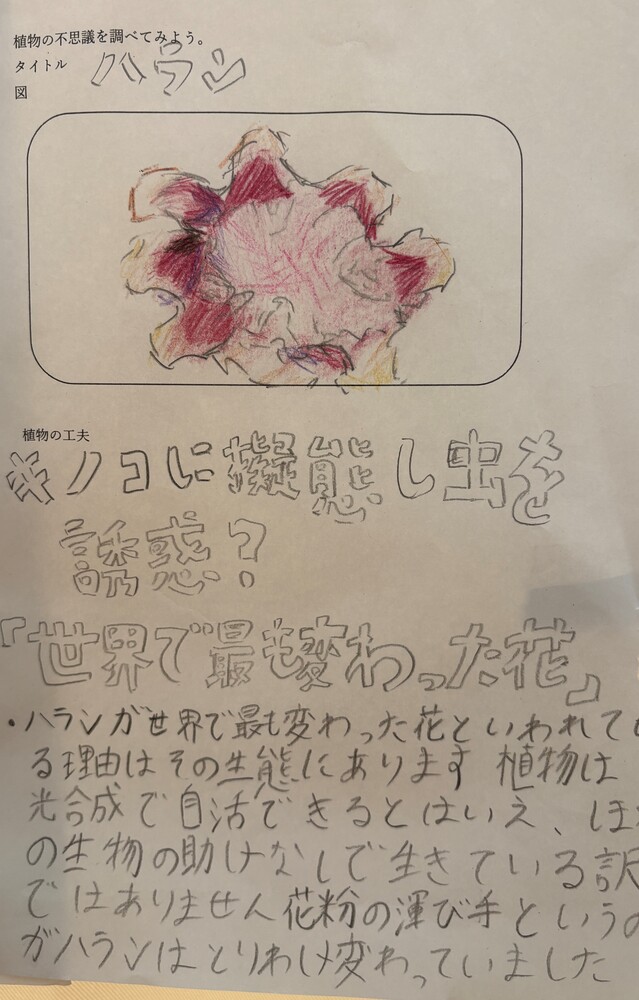 植物の不思議を調べてみよう。
タイトル ハラン
図
植物の工夫
キノコに擬態し虫を
誘惑?
「世界で最も変わった花」
・ハランが世界で最も変わった花といわれて
る理由はその生態にあります 植物は
光合成で自活できるとはいえ、ほ
の生物の助けなしで生きている訳
ではありません花粉の運び手という
がハランはとりわけ変わっていました